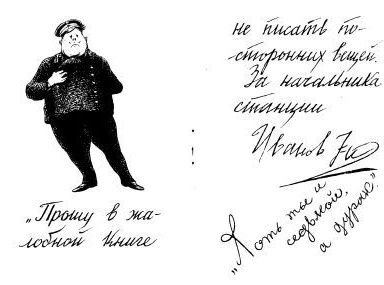 „Прошу в жа-
лобной книге
не писать по-
сторонних вещей.
За начальника
станции
Иванов 7-й
„Хоть ты и
седьмой,
а дурак."